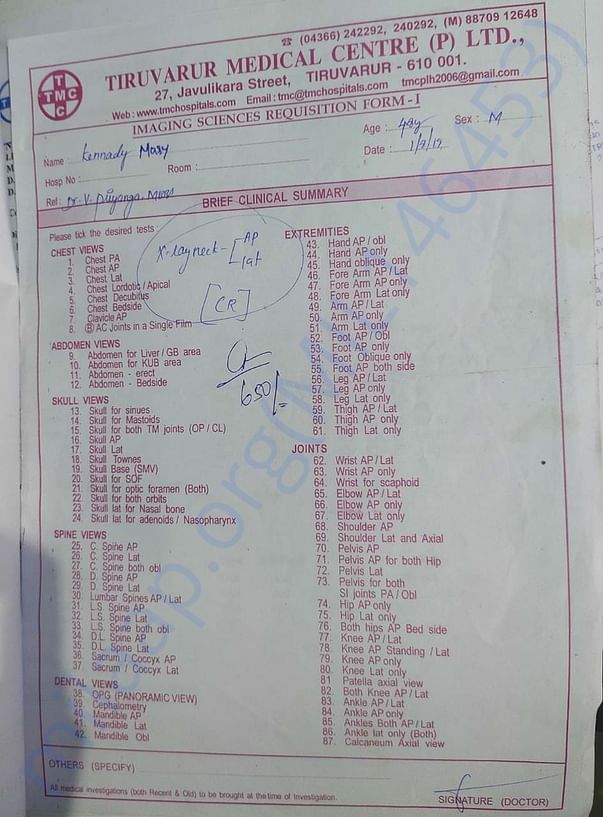 ☎ (04366) 242292, 240292, (M) 88709 12648
TIRUVARUR MEDICAL CENTRE (P) LTD.,
27, Javulikara Street, TIRUVARUR - 610 001.
Web : www.tmchospitals.com Email : tmc@tmchospitals.com tmcplh2006@gmail.com
TMC
IMAGING SCIENCES REQUISITION FORM - I
Name : Kennady Mary
Age : 48y Sex : M
Hosp No : Room :
Date : 1/9/19
Ref : Dr. V. Priyanga, MBBS
BRIEF CLINICAL SUMMARY
Please tick the desired tests :
X-ray neck - [AP
lat
[CR]
650/-
CHEST VIEWS
1. Chest PA
2. Chest AP
3. Chest Lat
4. Chest Lordotic / Apical
5. Chest Decubitus
6. Chest Bedside
7. Clavicle AP
8. Ⓑ AC Joints in a Single Film
ABDOMEN VIEWS
9. Abdomen for Liver / GB area
10. Abdomen for KUB area
11. Abdomen - erect
12. Abdomen - Bedside
SKULL VIEWS
13. Skull for sinues
14. Skull for Mastoids
15. Skull for both TM joints (OP / CL)
16. Skull AP
17. Skull Lat
18. Skull Townes
19. Skull Base (SMV)
20. Skull for SOF
21. Skull for optic foramen (Both)
22. Skull for both orbits
23. Skull lat for Nasal bone
24. Skull lat for adenoids / Nasopharynx
SPINE VIEWS
25. C. Spine AP
26. C. Spine Lat
27. C. Spine both obl
28. D. Spine AP
29. D. Spine Lat
30. Lumbar Spines AP / Lat
31. L.S. Spine AP
32. L.S. Spine Lat
33. L.S. Spine both obl
34. D.L. Spine AP
35. D.L. Spine Lat
36. Sacrum / Coccyx AP
37. Sacrum / Coccyx Lat
DENTAL VIEWS
38. OPG (PANORAMIC VIEW)
39. Cephalometry
40. Mandible AP
41. Mandible Lat
42. Mandible Obl
EXTREMITIES
43. Hand AP / obl
44. Hand AP only
45. Hand oblique only
46. Fore Arm AP / Lat
47. Fore Arm AP only
48. Fore Arm Lat only
49. Arm AP / Lat
50. Arm AP only
51. Arm Lat only
52. Foot AP / Obl
53. Foot AP only
54. Foot Oblique only
55. Foot AP both side
56. Leg AP / Lat
57. Leg AP only
58. Leg Lat only
59. Thigh AP / Lat
60. Thigh AP only
61. Thigh Lat only
JOINTS
62. Wrist AP / Lat
63. Wrist AP only
64. Wrist for scaphoid
65. Elbow AP / Lat
66. Elbow AP only
67. Elbow Lat only
68. Shoulder AP
69. Shoulder Lat and Axial
70. Pelvis AP
71. Pelvis AP for both Hip
72. Pelvis Lat
73. Pelvis for both
SI joints PA / Obl
74. Hip AP only
75. Hip Lat only
76. Both hips AP Bed side
77. Knee AP / Lat
78. Knee AP Standing / Lat
79. Knee AP only
80. Knee Lat only
81 Patella axial view
82. Both Knee AP / Lat
83. Ankle AP / Lat
84. Ankle AP only
85. Ankles Both AP / Lat
86. Ankle lat only (Both)
87. Calcaneum Axial view
OTHERS (SPECIFY)
All medical investigations (both Recent & Old) to be brought at the time of Investigation.
SIGNATURE (DOCTOR)